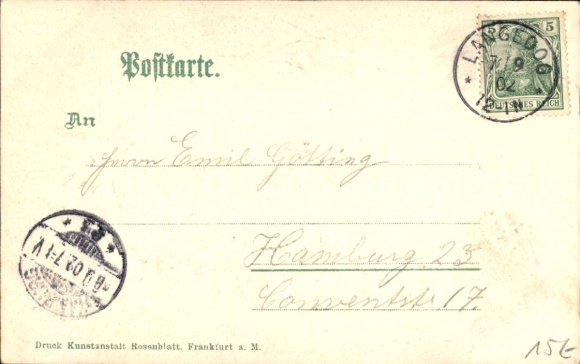 Postkarte.
5
LANGEOOG
7/9
02
12-1N
DEUTSCHES REICH
An
Herrn Emil Götting
Hamburg 23
Conventstr 17.
8.9.02.7-8V
Druck Kunstanstalt Rosenblatt. Frankfurt a. M.
15€